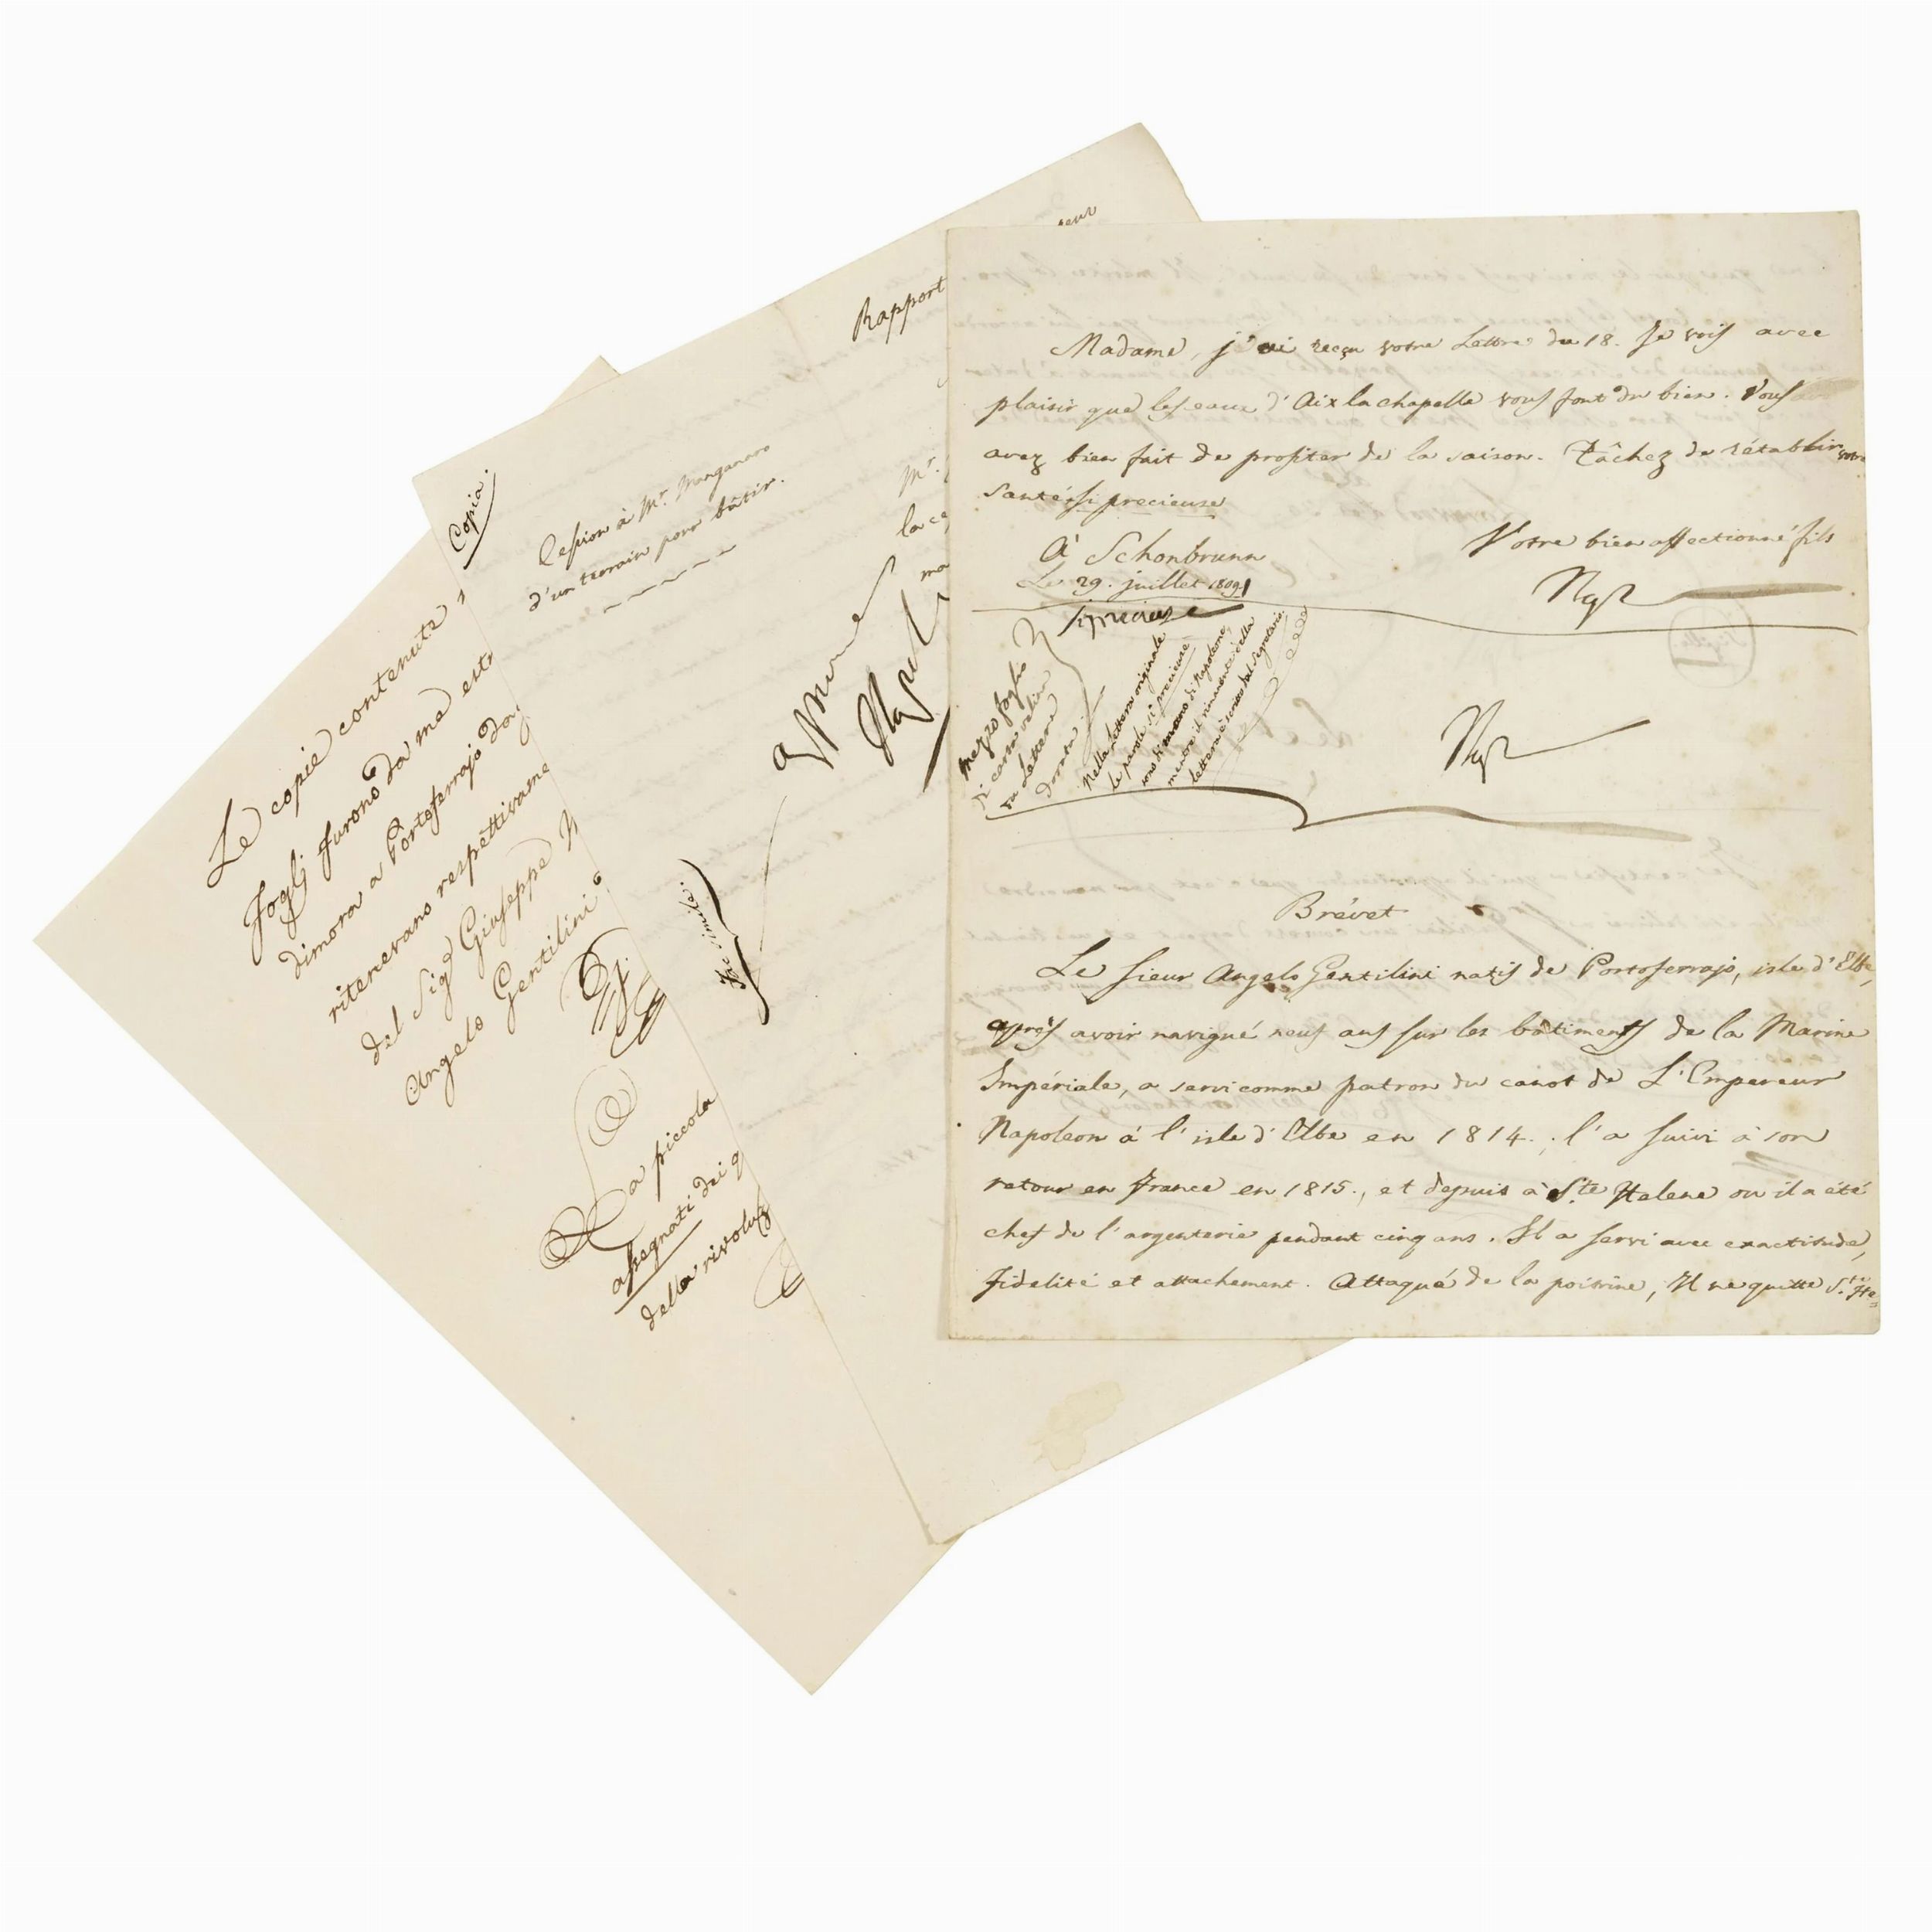 Le copie contenute
foglj furono da me estr
dimora a Portoferrajo da
ritenevano respettivame
del Sig.r Giuseppe
Angelo Gentilini
La piccola
assegnati dei q
della rivoluz
Copia.
Cession à Mr. Manganaro
d'un terrain pour bâtir.
Rapport
Mr.
la ce
ma
approuvé
Napol
Fac simile.
Madame, j'ai reçu votre Lettre du 18. Je vois avec
plaisir que les eaux d'Aix la chapelle vous font du bien. Vous
avez bien fait de profiter de la saison. Tâchez de rétablir votre
santé si precieuse
Votre bien affectionné fils
À Schonbrunn
Le 29. juillet 1809
Np
si precieuse
Sigillo
mezzo foglio
di carta velina
da Lettere
dorata
Nella lettera originale
le parole si precieuse
sono di mano di Napoleone,
mentre il rimanente della
lettera è scritto dal segretario.
Np
Brévet
Le sieur Angelo Gentilini natif de Portoferrajo, isle d'Elbe,
après avoir navigué neuf ans sur les bâtiments de la Marine
Impériale, a servi comme patron du canot de L'Empereur
Napoleon á l'isle d'Elbe en 1814., l'a suivi à son
retour en France en 1815., et depuis à Ste Helene ou il a été
chef de l'argenterie pendant cinq ans. Il a servi avec exactitude,
fidelité et attachement. Attaqué de la poitrine, Il ne quitte Ste He=